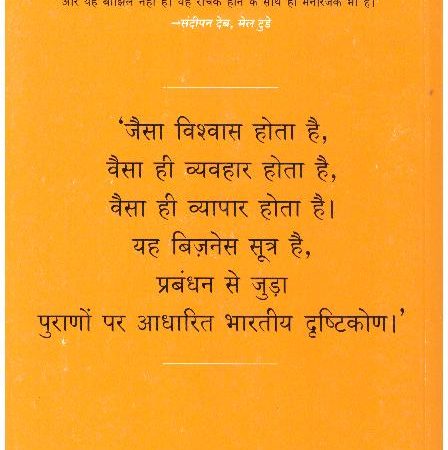 और यह बोझिल नहीं है। यह रोचक होने के साथ ही मनोरंजक भी है।
—संदीपन देब, मेल टुडे
‘जैसा विश्वास होता है,
वैसा ही व्यवहार होता है,
वैसा ही व्यापार होता है।
यह बिज़नेस सूत्र है,
प्रबंधन से जुड़ा
पुराणों पर आधारित भारतीय दृष्टिकोण।’